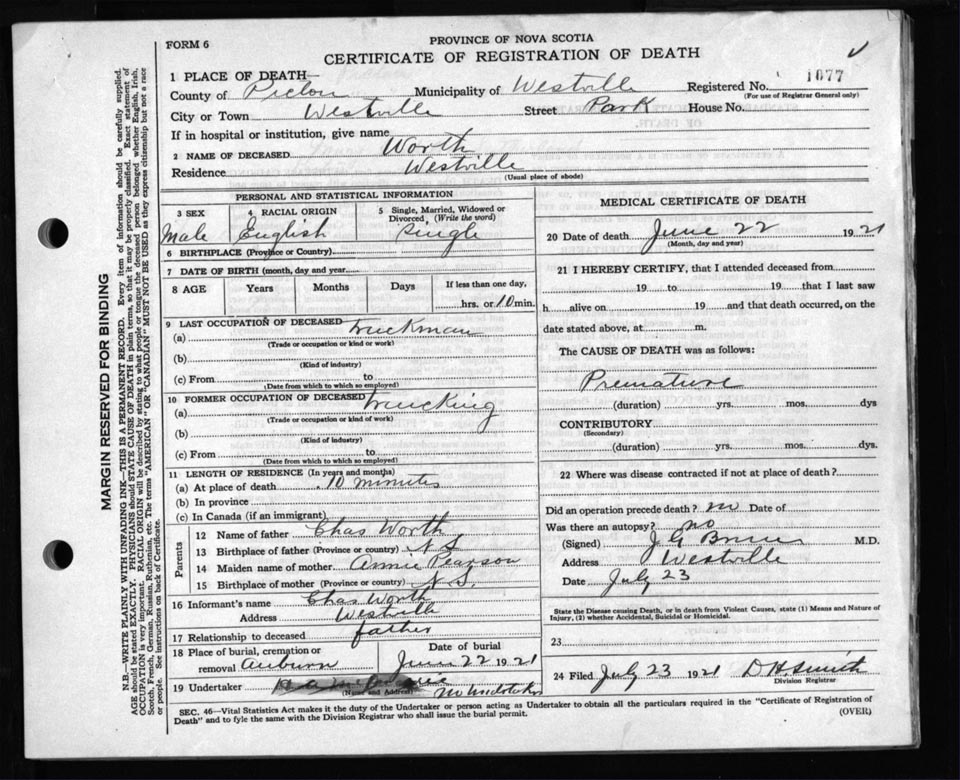 FORM 6
PROVINCE OF NOVA SCOTIA
CERTIFICATE OF REGISTRATION OF DEATH
1 PLACE OF DEATH—
County of Pictou Municipality of Westville Registered No. 1677
(For use of Registrar General only)
City or Town Westville Street Park House No.
If in hospital or institution, give name
2 NAME OF DECEASED Worth
Residence Westville
(Usual place of abode)
PERSONAL AND STATISTICAL INFORMATION
3 SEX 4 RACIAL ORIGIN 5 Single, Married, Widowed or Divorced, (Write the word)
Male English Single
6 BIRTHPLACE (Province or Country)
7 DATE OF BIRTH (month, day and year
8 AGE Years Months Days If less than one day,
hrs. or 10 min.
9 LAST OCCUPATION OF DECEASED
(a) Truckman
(Trade or occupation or kind or work)
(b)
(Kind of industry)
(c) From to
(Date from which to which so employed)
10 FORMER OCCUPATION OF DECEASED
(a) Trucking
(Trade or occupation or kind of work)
(b)
(Kind of industry)
(c) From to
(Date from which to which so employed)
11 LENGTH OF RESIDENCE (In years and months)
(a) At place of death 10 minutes
(b) In province
(c) In Canada (if an immigrant)
Parents
12 Name of father Chas Worth
13 Birthplace of father (Province or country) N.S.
14 Maiden name of mother Annie Pearson
15 Birthplace of mother (Province or country) N.S.
16 Informant's name Chas Worth
Address Westville
17 Relationship to deceased father
18 Place of burial, cremation or removal Auburn
Date of burial
June 22 1921
19 Undertaker no undertaker
(Name and Address)
MEDICAL CERTIFICATE OF DEATH
20 Date of death June 22 1921
(Month, day and year)
21 I HEREBY CERTIFY, that I attended deceased from
19 to 19 that I last saw
h alive on 19 and that death occurred, on the
date stated above, at m.
The CAUSE OF DEATH was as follows:
Premature
(duration) yrs. mos. dys
CONTRIBUTORY
(Secondary)
(duration) yrs. mos. dys.
22 Where was disease contracted if not at place of death?
Did an operation precede death? no Date of
Was there an autopsy? no
(Signed) J G M.D.
Address Westville
Date July 23
State the Disease causing Death, or in death from Violent Causes, state (1) Means and Nature of Injury, (2) whether Accidental, Suicidal or Homicidal.
23
24 Filed July 23 1921 D H Smith
Division Registrar
SEC. 46—Vital Statistics Act makes it the duty of the Undertaker or person acting as Undertaker to obtain all the particulars required in the "Certificate of Registration of
Death" and to fyle the same with the Division Registrar who shall issue the burial permit.
(OVER)
MARGIN RESERVED FOR BINDING
N.B.—WRITE PLAINLY WITH UNFADING INK—THIS IS A PERMANENT RECORD. Every item of information should be carefully supplied.
AGE should be stated EXACTLY. PHYSICIANS should STATE CAUSE OF DEATH in plain terms, so that it may be properly classified. Exact statement of
OCCUPATION is very important. RACIAL ORIGIN will be described by stating to what people or tongue the deceased person belonged whether English, Irish,
Scotch, French, German, Russian, Ruthenian, etc. The terms "AMERICAN" OR "CANADIAN" MUST NOT BE USED as they express citizenship but not a race
or people. See instructions on back of Certificate.